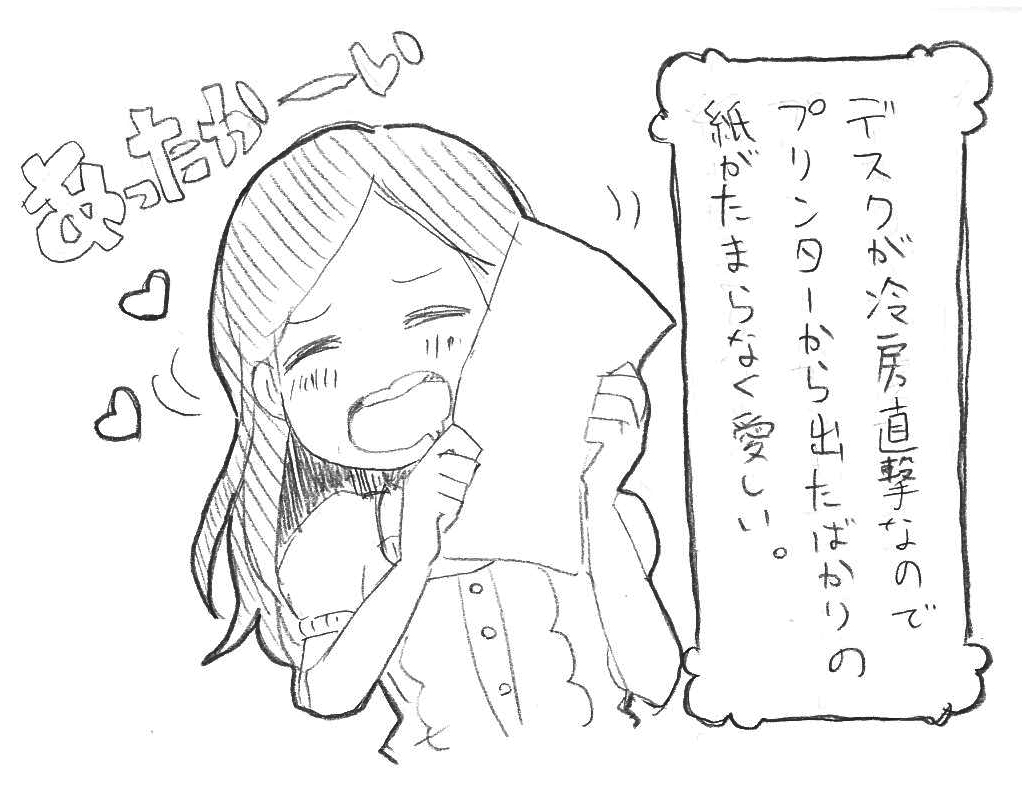 デスクが冷房直撃なので
プリンターから出たばかりの
紙がたまらなく愛しい。
あったかーい